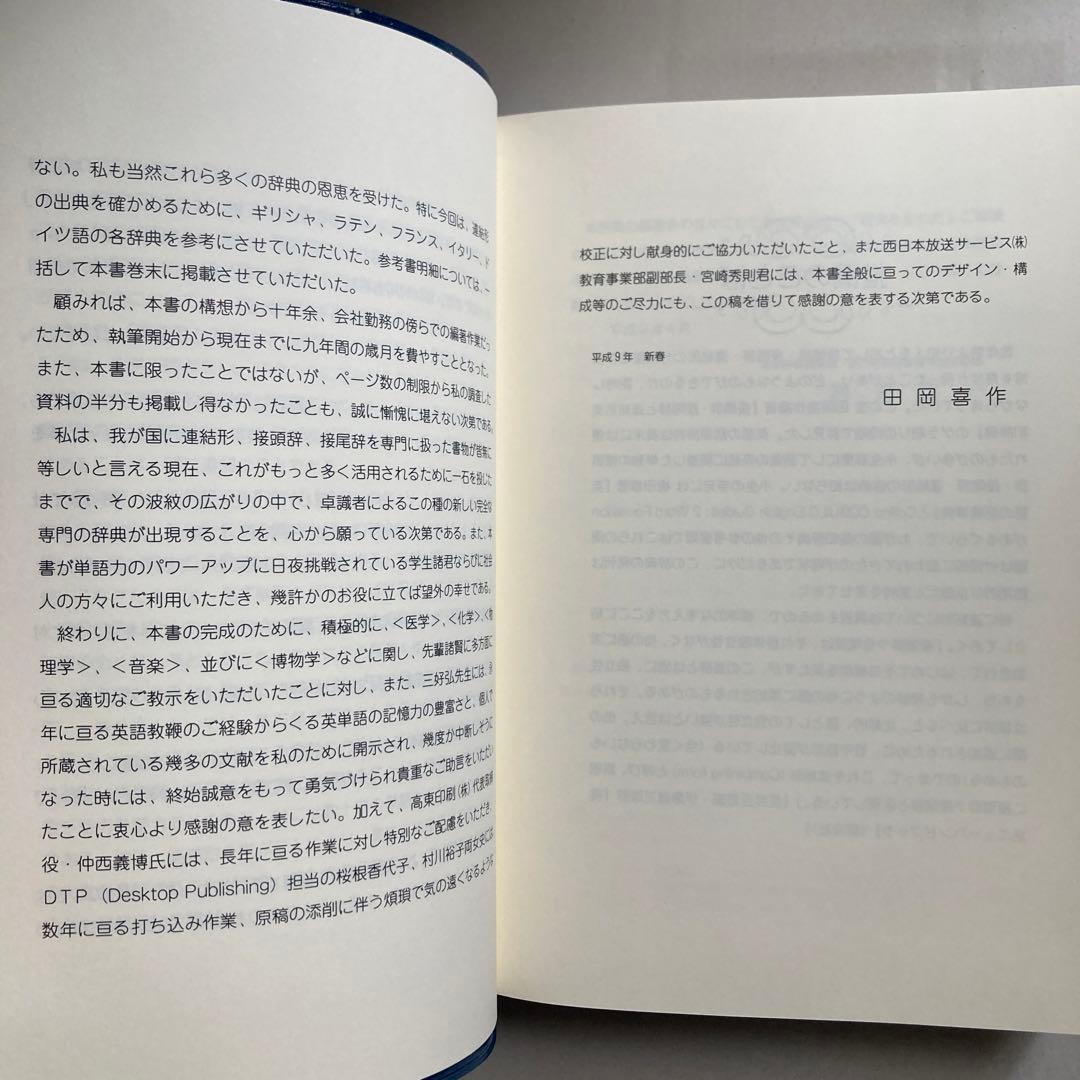 ない。私も当然これら多くの辞典の恩恵を受けた。特に今回は、連結形
の出典を確かめるために、ギリシャ、ラテン、フランス、イタリー、ド
イツ語の各辞典を参考にさせていただいた。参考書明細については、一
括して本書巻末に掲載させていただいた。
顧みれば、本書の構想から十年余、会社勤務の傍らでの編著作業だっ
たため、執筆開始から現在までに九年間の歳月を費やすこととなった。
また、本書に限ったことではないが、ページ数の制限から私の調査した
資料の半分も掲載し得なかったことも、誠に慚愧に堪えない次第である。
私は、我が国に連結形、接頭辞、接尾辞を専門に扱った書物が皆無に
等しいと言える現在、これがもっと多く活用されるために一石を投じた
までで、その波紋の広がりの中で、卓識者によるこの種の新しい完全な
専門の辞典が出現することを、心から願っている次第である。また、本
書が単語力のパワーアップに日夜挑戦されている学生諸君ならびに社会
人の方々にご利用いただき、幾許かのお役に立てば望外の幸せである。
終わりに、本書の完成のために、積極的に、<医学>、<化学>、<物
理学>、<音楽>、並びに<博物学>などに関し、先輩諸賢に多方面に
亘る適切なご教示をいただいたことに対し、また、三好弘先生には、永
年に亘る英語教鞭のご経験からくる英単語の記憶力の豊富さと、個人で
所蔵されている幾多の文献を私のために開示され、幾度か中断しそうに
なった時には、終始誠意をもって勇気づけられ貴重なご助言をいただい
たことに衷心より感謝の意を表したい。加えて、高東印刷(株)代表取締
役・仲西義博氏には、長年に亘る作業に対し特別なご配慮をいただき、
DTP（Desktop Publishing）担当の桜根香代子、村川裕子両女史には
数年に亘る打ち込み作業、原稿の添削に伴う煩瑣で気の遠くなるような
校正に対し献身的にご協力いただいたこと、また西日本放送サービス㈱
教育事業部副部長・宮崎秀則君には、本書全般に亘ってのデザイン・構
成等のご尽力にも、この稿を借りて感謝の意を表する次第である。
平成９年　新春
田岡喜作